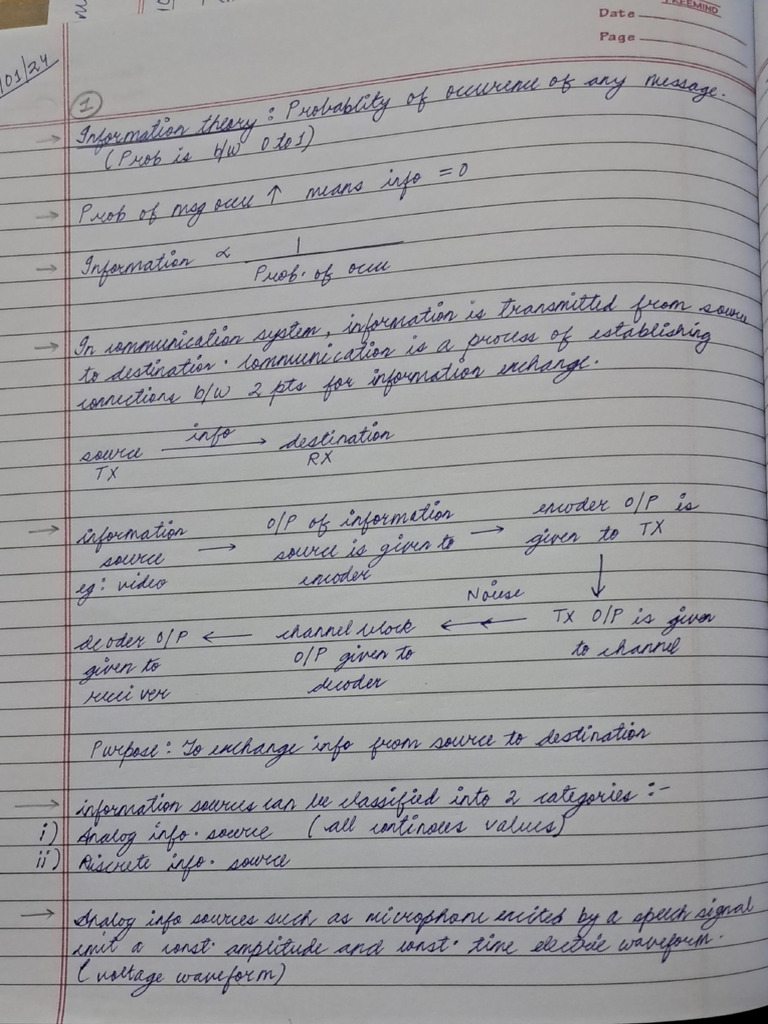 FREEMIND
Date
Page
/01/24
1
→ Information theory : Probablity of occurence of any message.
(Prob is b/w 0 to 1)
→ Prob of msg occu ↑ means info = 0
→ Information ∝ 1
Prob. of occu
→ In communication system, information is transmitted from source
to destination. communication is a process of establishing
connections b/w 2 pts for information exchange.
source info → destination
TX RX
→ information → O/P of information → encoder O/P is
source source is given to given to TX
eg: video encoder ↓
Noise
decoder O/P ← channel block ← ← TX O/P is given
given to O/P given to to channel
reciever decoder
Purpose : To exchange info from source to destination
→ information sources can be classified into 2 categories :-
i) Analog info. source (all continoues values)
ii) Discrete info. source
→ Analog info sources such as microphone excited by a speech signal
emit a const. amplitude and const. time electric waveform.
(voltage waveform)